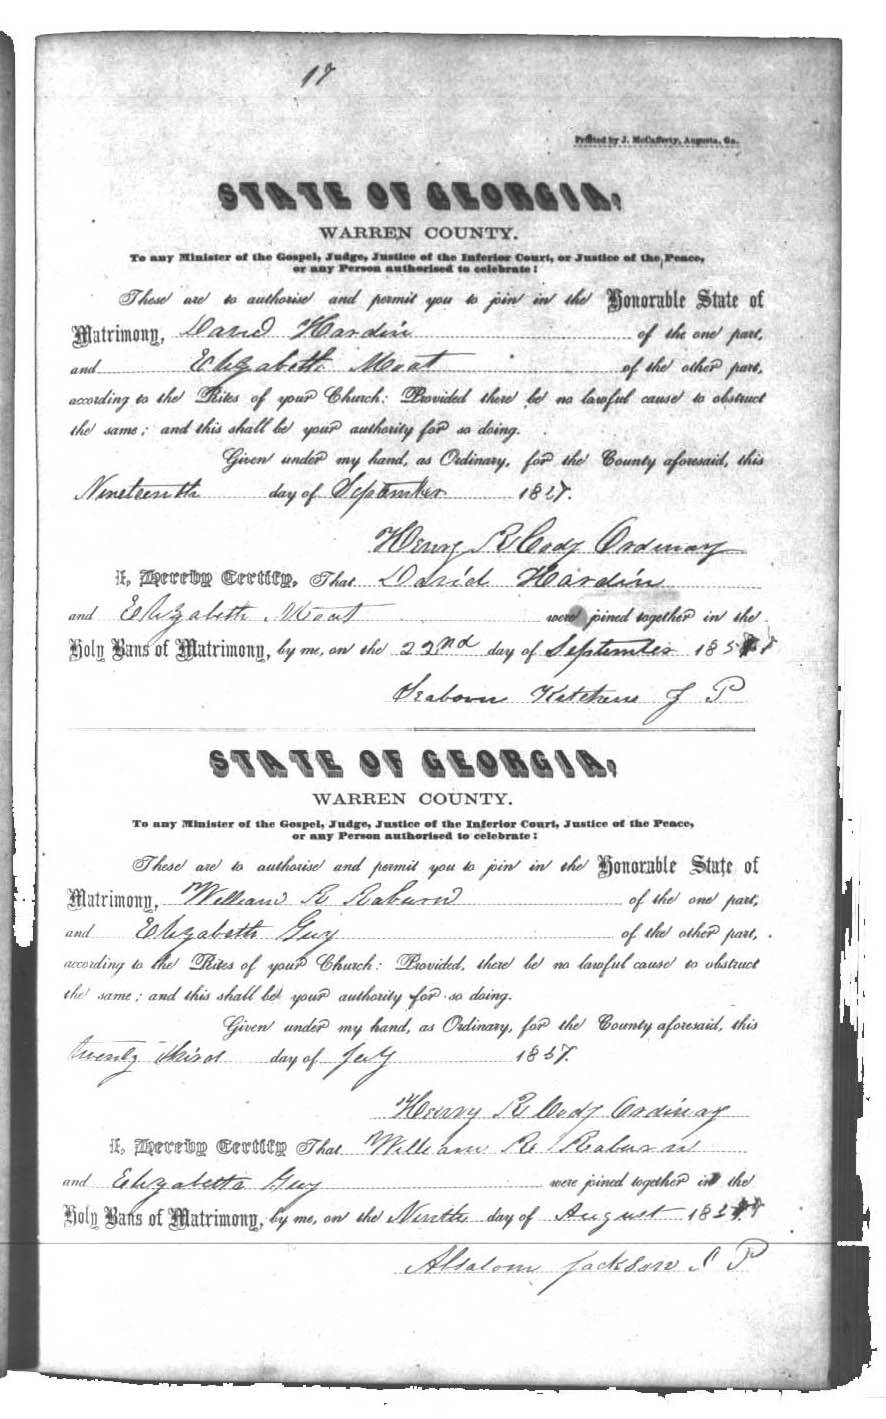 17
Printed by J. McCafferty, Augusta, Ga.
STATE OF GEORGIA,
WARREN COUNTY.
To any Minister of the Gospel, Judge, Justice of the Inferior Court, or Justice of the Peace,
or any Person authorised to celebrate:
These are to authorise and permit you to join in the Honorable State of
Matrimony, David Hardin of the one part,
and Elizabeth Moat of the other part,
according to the Rites of your Church: Provided there be no lawful cause to obstruct
the same; and this shall be your authority for so doing.
Given under my hand, as Ordinary, for the County aforesaid, this
Nineteenth day of September 1857.
Henry R Cody Ordinary
I, Hereby Certify, That David Hardin
and Elizabeth Moat were joined together in the
Holy Bans of Matrimony, by me, on the 22nd day of September 185
Seaborn Kitchens J P
STATE OF GEORGIA,
WARREN COUNTY.
To any Minister of the Gospel, Judge, Justice of the Inferior Court, Justice of the Peace,
or any Person authorised to celebrate:
These are to authorise and permit you to join in the Honorable State of
Matrimony, William R Raburn of the one part,
and Elizabeth Guy of the other part,
according to the Rites of your Church: Provided, there be no lawful cause to obstruct
the same; and this shall be your authority for so doing.
Given under my hand, as Ordinary, for the County aforesaid, this
twenty third day of July 1857.
Henry R Cody Ordinary
I, Hereby Certify That William R Raburn
and Elizabeth Guy were joined together in the
Holy Bans of Matrimony, by me, on the Ninth day of August 185
Absalom Jackson J P